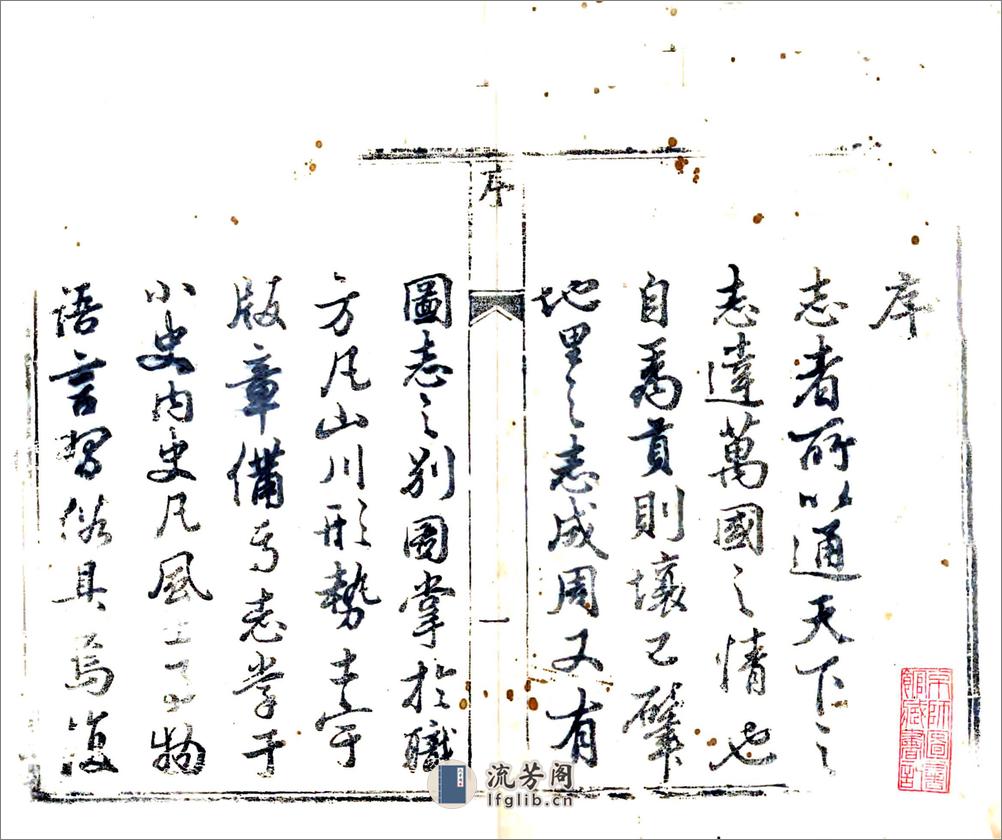 序
志者所以通天下之
志達萬國之情也
自禹貢則壤已肈
地里之志成周又有
序
一
圖志之別圖掌於職
方凡山川形勢
版章備焉志掌于
小史內史凡風土物
語言習俗具焉復
京師圖書館藏書記
流芳阁
lfglib.cn